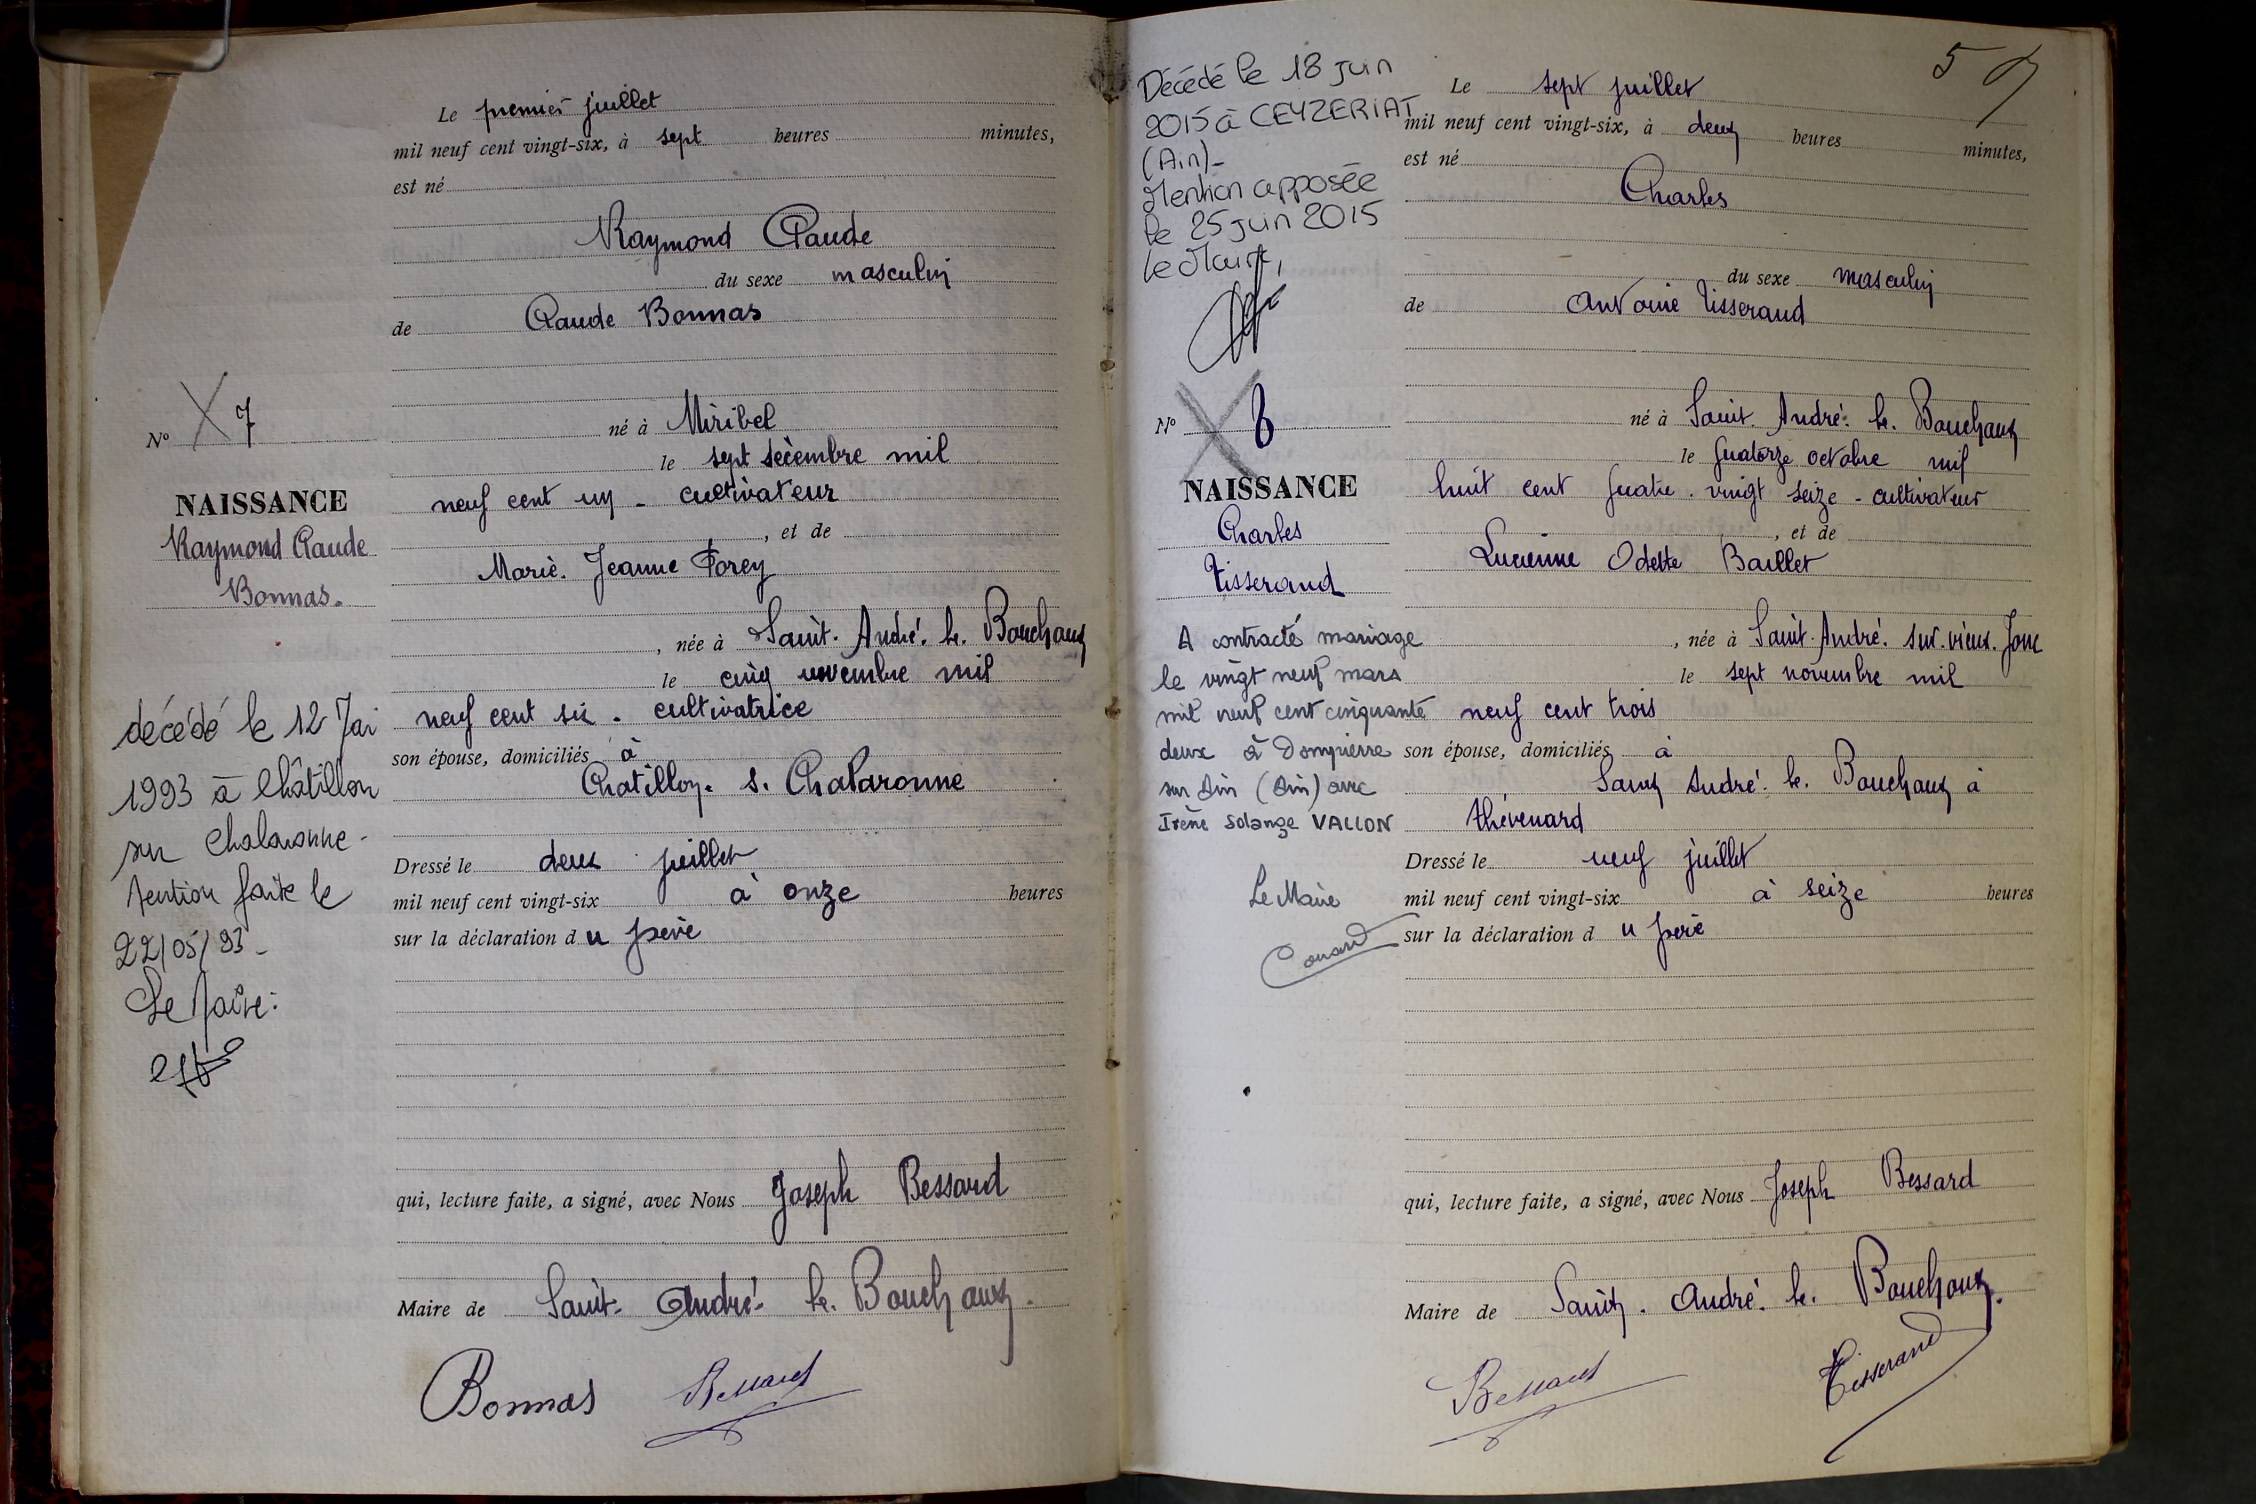 Le premier juillet
mil neuf cent vingt-six, à sept heures minutes,
est né
Raymond Claude
du sexe masculin
de Claude Bonnas
né à Miribel
le sept décembre mil
neuf cent un - cultivateur
, et de
Marie. Jeanne Forey
, née à Saint. André. le. Bouchoux
le cinq novembre mil
neuf cent six . cultivatrice
son épouse, domiciliés à
Chatillon. s. Chalaronne
Dressé le deux juillet
mil neuf cent vingt-six à onze heures
sur la déclaration du père
qui, lecture faite, a signé, avec Nous Joseph Bessard
Maire de Saint. André. le. Bouchoux.
Bonnas Bessard
N° 7
NAISSANCE
Raymond Claude
Bonnas.
décédé le 12 Mai
1993 à Châtillon
sur Chalaronne -
Mention faite le
22/05/93 -
Le Maire:
5
Le sept juillet
mil neuf cent vingt-six, à deux heures minutes,
est né
Charles
du sexe masculin
de Antoine Tisserand
né à Saint. André. le. Bouchoux
le quatorze octobre mil
huit cent quatre. vingt seize - cultivateur
, et de
Lucienne Odette Baillet
, née à Saint. André. sur. vieux. Jonc
le sept novembre mil
neuf cent trois
son épouse, domiciliés à
Saint André. le. Bouchoux à
thévenard
Dressé le neuf juillet
mil neuf cent vingt-six à seize heures
sur la déclaration du père
qui, lecture faite, a signé, avec Nous Joseph Bessard
Maire de Saint. André. le. Bouchoux.
Bessard Tisserand
Décédé le 18 juin
2015 à CEYZERIAT
(Ain)-
Mention apposée
le 25 juin 2015
Le Maire,
N° 8
NAISSANCE
Charles
Tisserand
A contracté mariage
le vingt neuf mars
mil neuf cent cinquante
deux à Dompierre
sur Ain (Ain) avec
Irène Solange VALLON
Le Maire